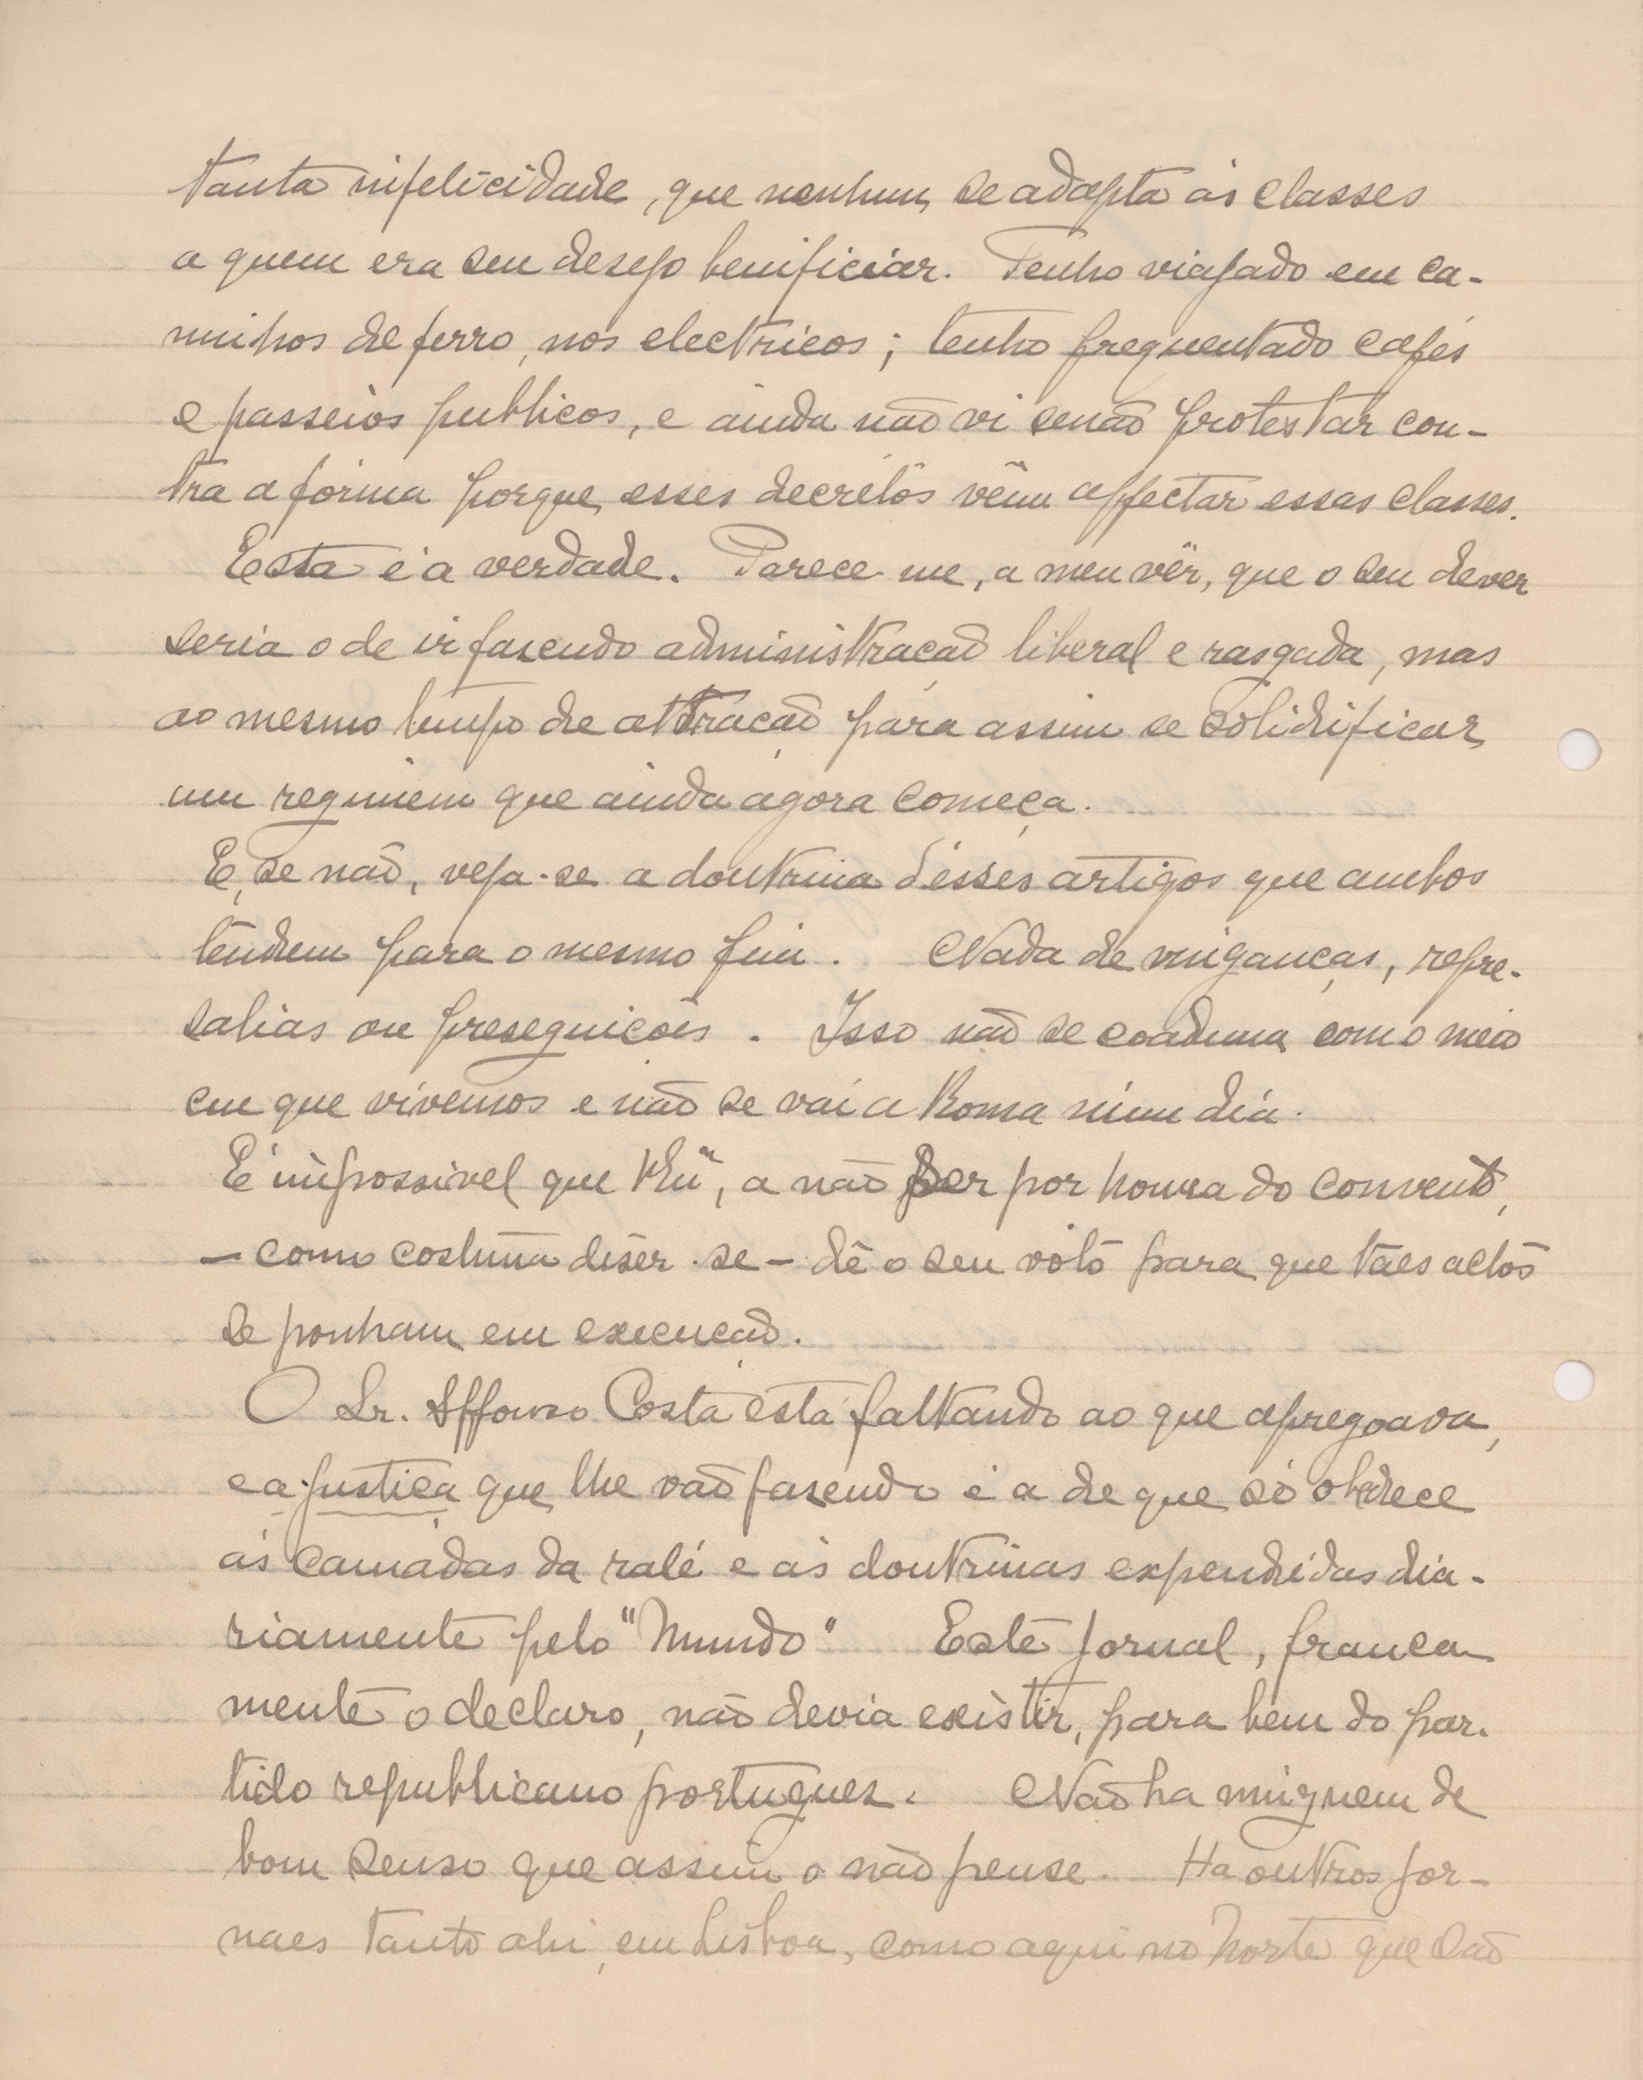 tanta infelicidade, que nenhum se adapta ás classes
a quem era seu desejo benificiar. Tenho viajado em ca-
minhos de ferro, nos electricos; tenho frequentado cafés
e passeios publicos, e ainda não vi senão protestar con-
tra a fórma porque esses decretos vêm affectar essas classes.
Esta é a verdade. Parece-me, a meu vêr, que o seu dever
seria o de ir fazendo administração liberal e rasgada, mas
ao mesmo tempo de attração para assim se solidificar
um regimem que ainda agora começa.
E, se não, veja-se a doutrina d'esses artigos que ambos
tendem para o mesmo fim. Nada de vinganças, repre-
salias ou preseguições. Isso não se coaduna com o meio
em que vivemos e não se vai a Roma n'um dia.
É impossivel que V. Ex.ª, a não ser por honra do convento,
- como costuma diser-se - dê o seu voto para que táes actos
se ponham em execução.
O Sr. Affonso Costa está faltando ao que apregoava,
e a justiça que lhe vão fazendo é a de que só obdece
ás camadas da ralé e ás doutrinas expendidas dia-
riamente pelo "Mundo" Este jornal, franca-
mente o declaro, não devia existir, para bem do par-
tido republicano portuguez. Não ha ninguem de
bom senso que assim o não pense. Ha outros jor-
naes tanto ahi, em Lisboa, como aqui no Norte que são